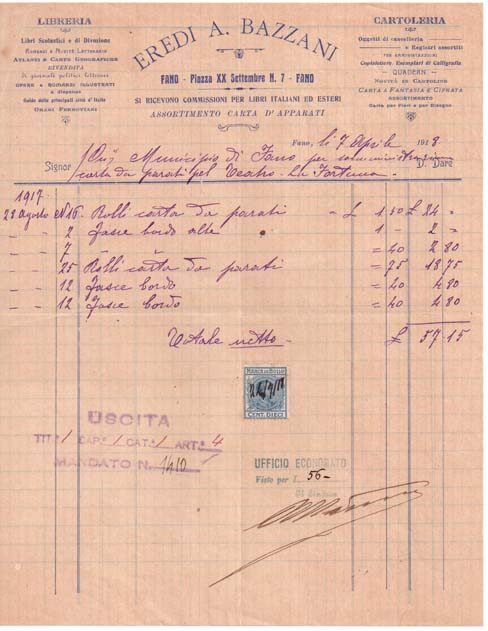 LIBRERIA
Libri Scolastici e di Divozione
Romanzi e Novità Letterarie
Atlanti e Carte Geografiche
RIVENDITA
di giornali politici letterari
OPERE e ROMANZI ILLUSTRATI
a dispense
Guide delle principali città d'Italia
Orari Ferroviari
EREDI A. BAZZANI
FANO - Piazza XX Settembre N. 7 - FANO
SI RICEVONO COMMISSIONI PER LIBRI ITALIANI ED ESTERI
ASSORTIMENTO CARTA D'APPARATI
CARTOLERIA
Oggetti di cancelleria
e Registri assortiti
PER AMMINISTRAZIONI
Copialettere Esemplari di Calligrafia
QUADERNI
NOVITÀ IN CARTOLINE
CARTA A FANTASIA E CIFRATA
ASSORTIMENTO
Carta per Fiori e per Disegno
Fano, li 7 Aprile 1918.
Signor Municipio di Fano per somministrazione
carta da parati pel Teatro La Fortuna D. Dare
1917
23 Agosto N 16 Rolli carta da parati £ 1.50 £ 24 "
" " 2 Fasce bordo alte 1 - 2 "
" " 7 = 40 2 80
" " 25 Rolli carta da parati = 75 18.75
" " 12 Fasce bordo = 40 4 80
" " 12 Fasce bordo = 40 4.80
Totale netto £ 57.15
MARCA DA BOLLO
CENT. DIECI
USCITA
TIT. 1 CAP. 1 CAT. 1 ART. 4
MANDATO N. 1410
UFFICIO ECONOMATO
Visto per L. 56-